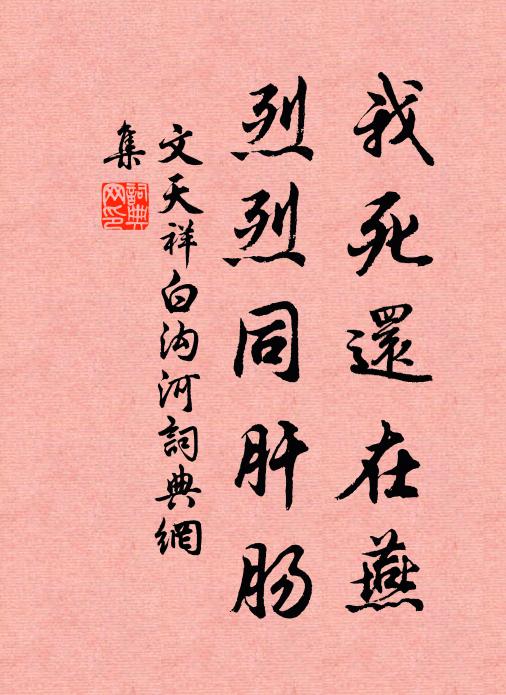 我死還在燕
烈烈同肝肠
文天祥白沟河詞典網
集
詞典
网印